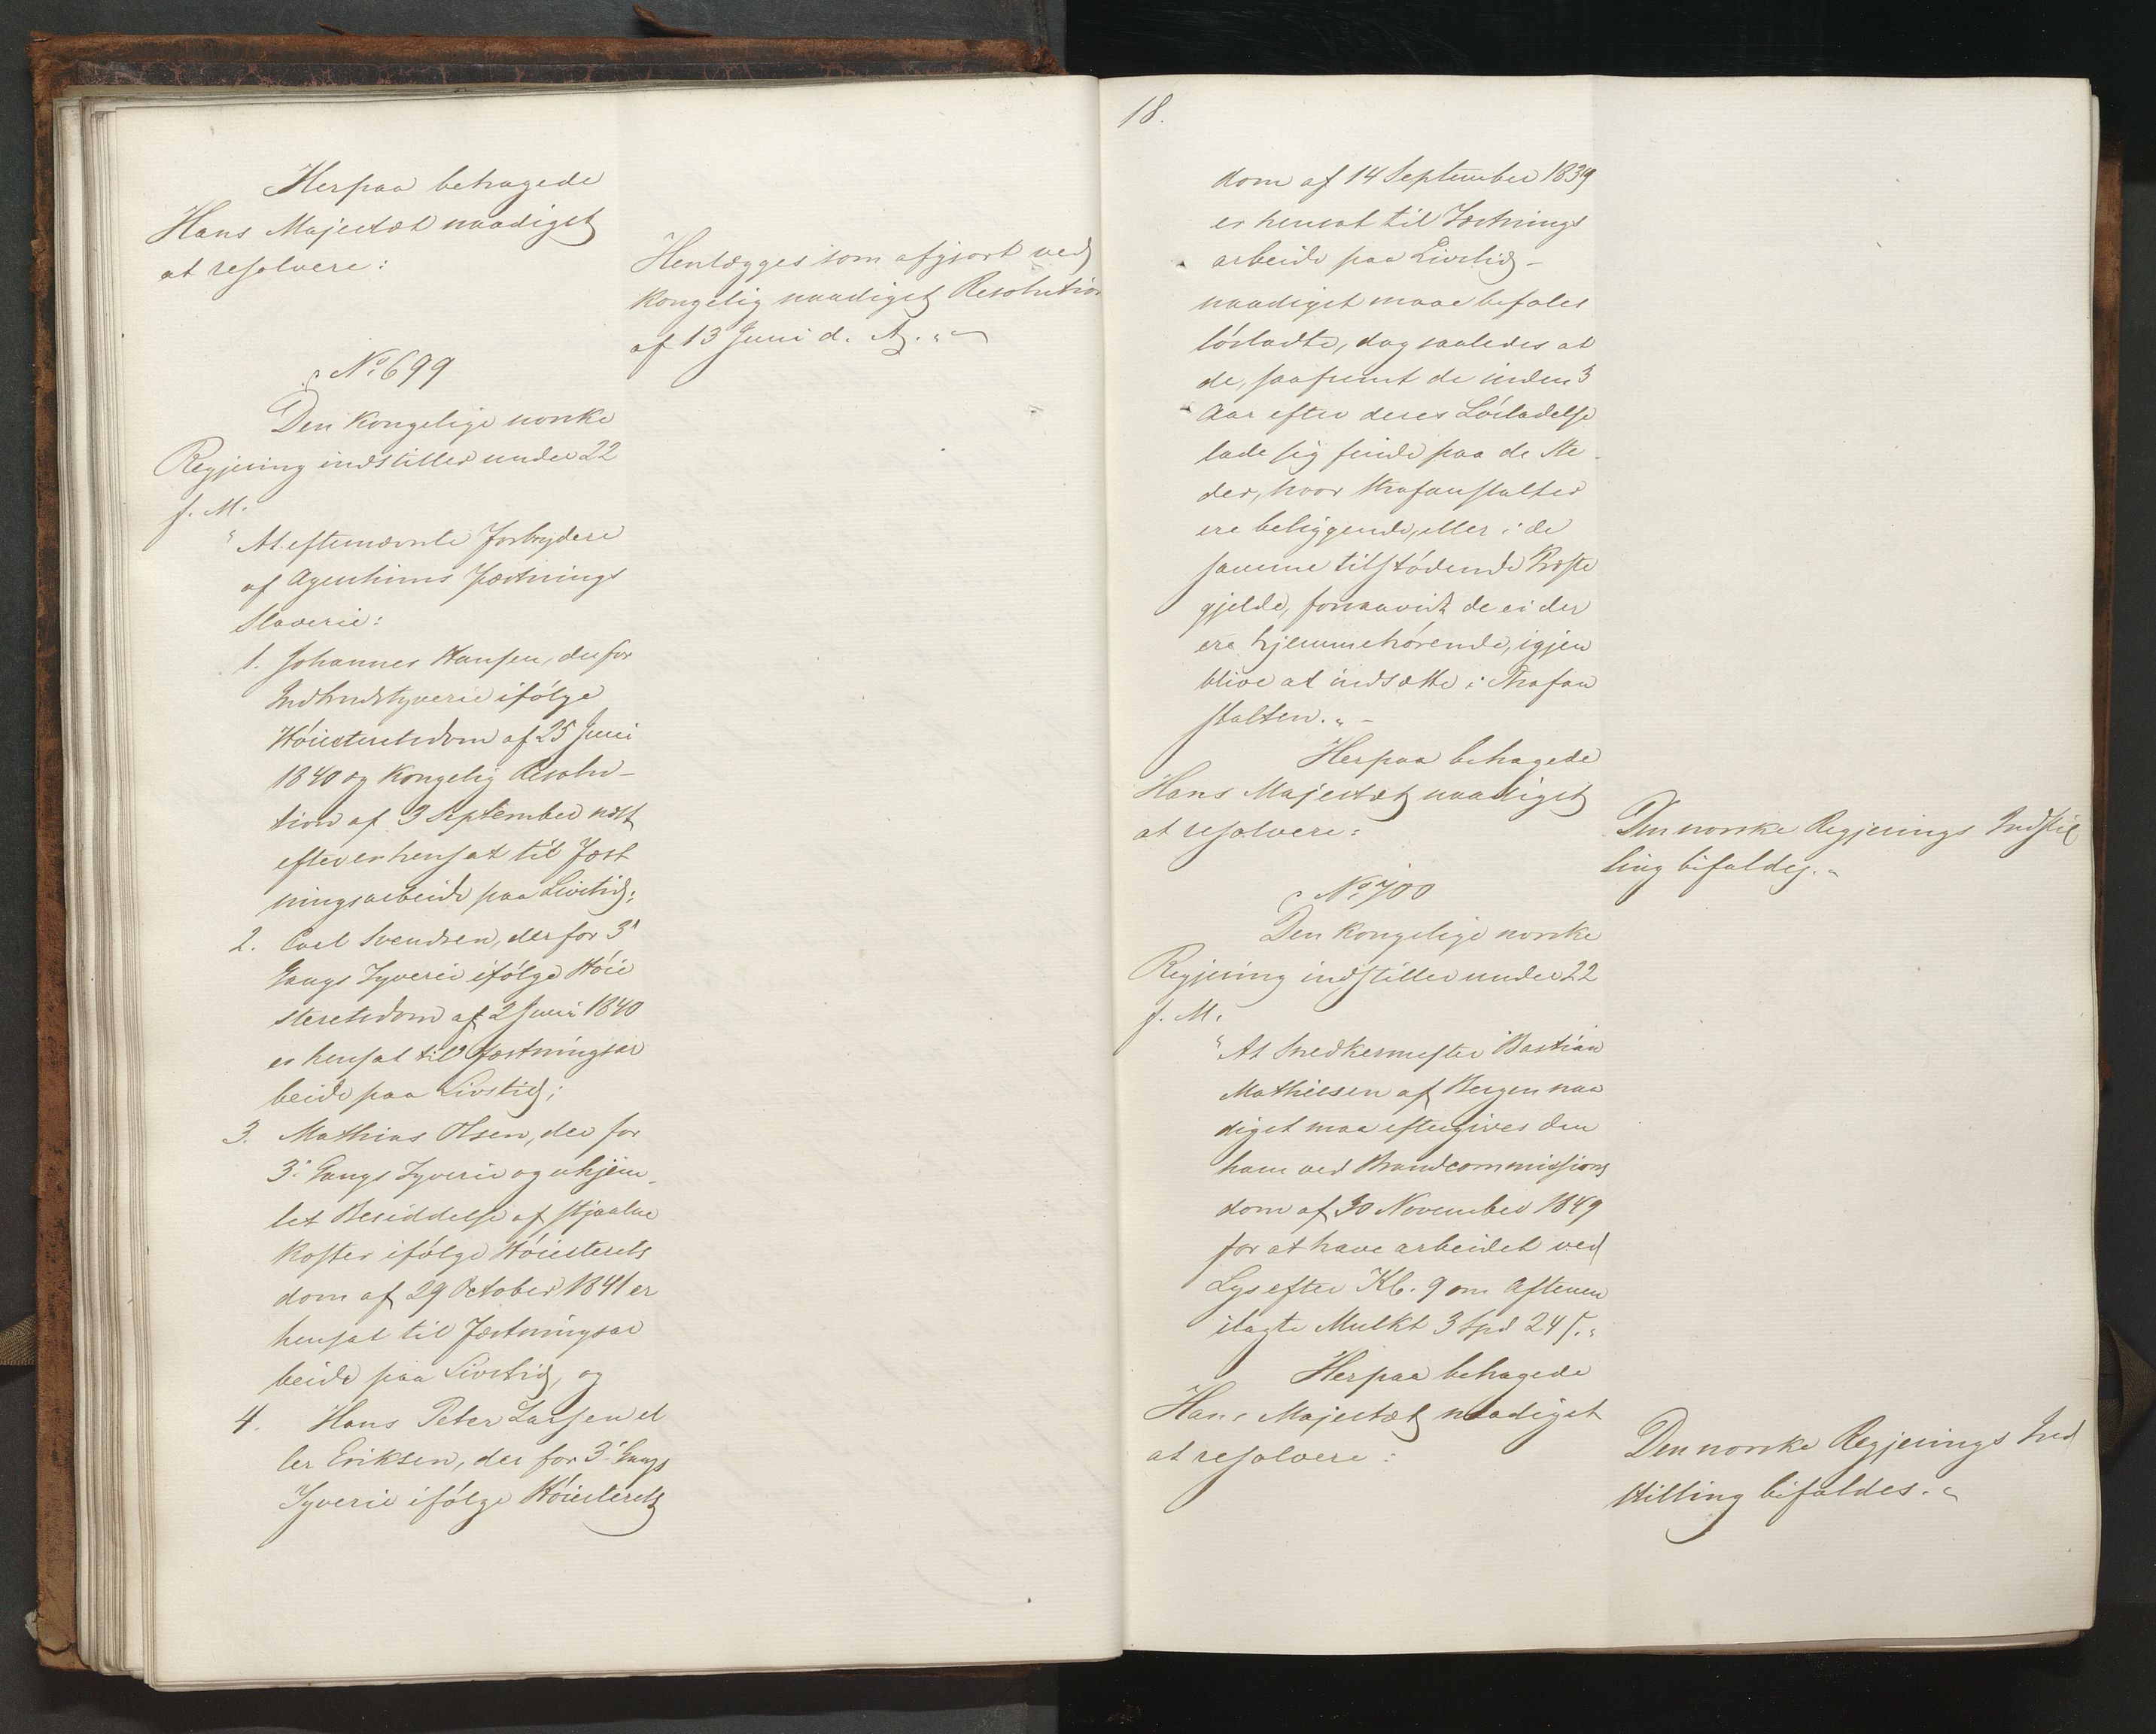 Herpaa behagede
Hans Majestæt naadigst
at resolvere:
Henlægges som afgjort ved
Kongelig naadigst Resolution
af 13 Juni d. A. "
No. 699
Den Kongelige norske
Regjering indstiller under 22
f. M.
"At efternævnte Forbrydere
af Agershuus Fæstnings
Slaverie:
1. Johannes Hansen, der for
Indbrudstyverie ifölge
Höiesteretsdom af 25 Juni
1840 og Kongelig Resolu-
tion af 3 September næst
efter er hensat til Fæst
ningsarbeide paa Livstid;
2. Carl Svendsen, der for 3'
Gangs Tyverie ifölge Höie
steretsdom af 2 Juni 1840
er hensat til Fæstningsar
beide paa Livstid;
3. Mathias Olsen, der for
3' Gangs Tyverie og uhjem-
let Besiddelse af stjaalne
Koster ifölge Höiesterets
dom af 29 October 1841 er
hensat til Fæstningsar
beide paa Livstid, og
4. Hans Peter Larsen el
ler Eriksen, der for 3' Gangs
Tyverie ifölge Höiesterets
18.
dom af 14 September 1839
er hensat til Fæstnings
arbeide paa Livstid-
naadigst maae befales
lösladte, dog saaledes at
de, saafremt de inden 3
Aar efter deres Lösladelse
lade sig finde paa de Ste-
der, hvor Strafanstalter
ere beliggende, eller i de
samme tilstödende Præste
gjelde, forsaavidt de ei der
ere hjemmehörende, igjen
blive at indsætte i Strafan
stalten." -
Herpaa behagede
Hans Majestæt naadigst
at resolvere:
Den norske Regjerings Indstil
ling bifaldes."
No. 700
Den Kongelige norske
Regjering indstiller under 22
f. M.
"At Snedkermester Bastian
Mathiesen af Bergen naa
digst maa eftergives den
ham ved Brandcommissions
dom af 30 November 1849
for at have arbeidet ved
Lys efter Kl. 9 om Aftenen
ilagte Mulkt 3 Spd 24 s."
Herpaa behagede
Hans Majestæt naadigst
at resolvere:
Den norske Regjerings Ind
stilling bifaldes."